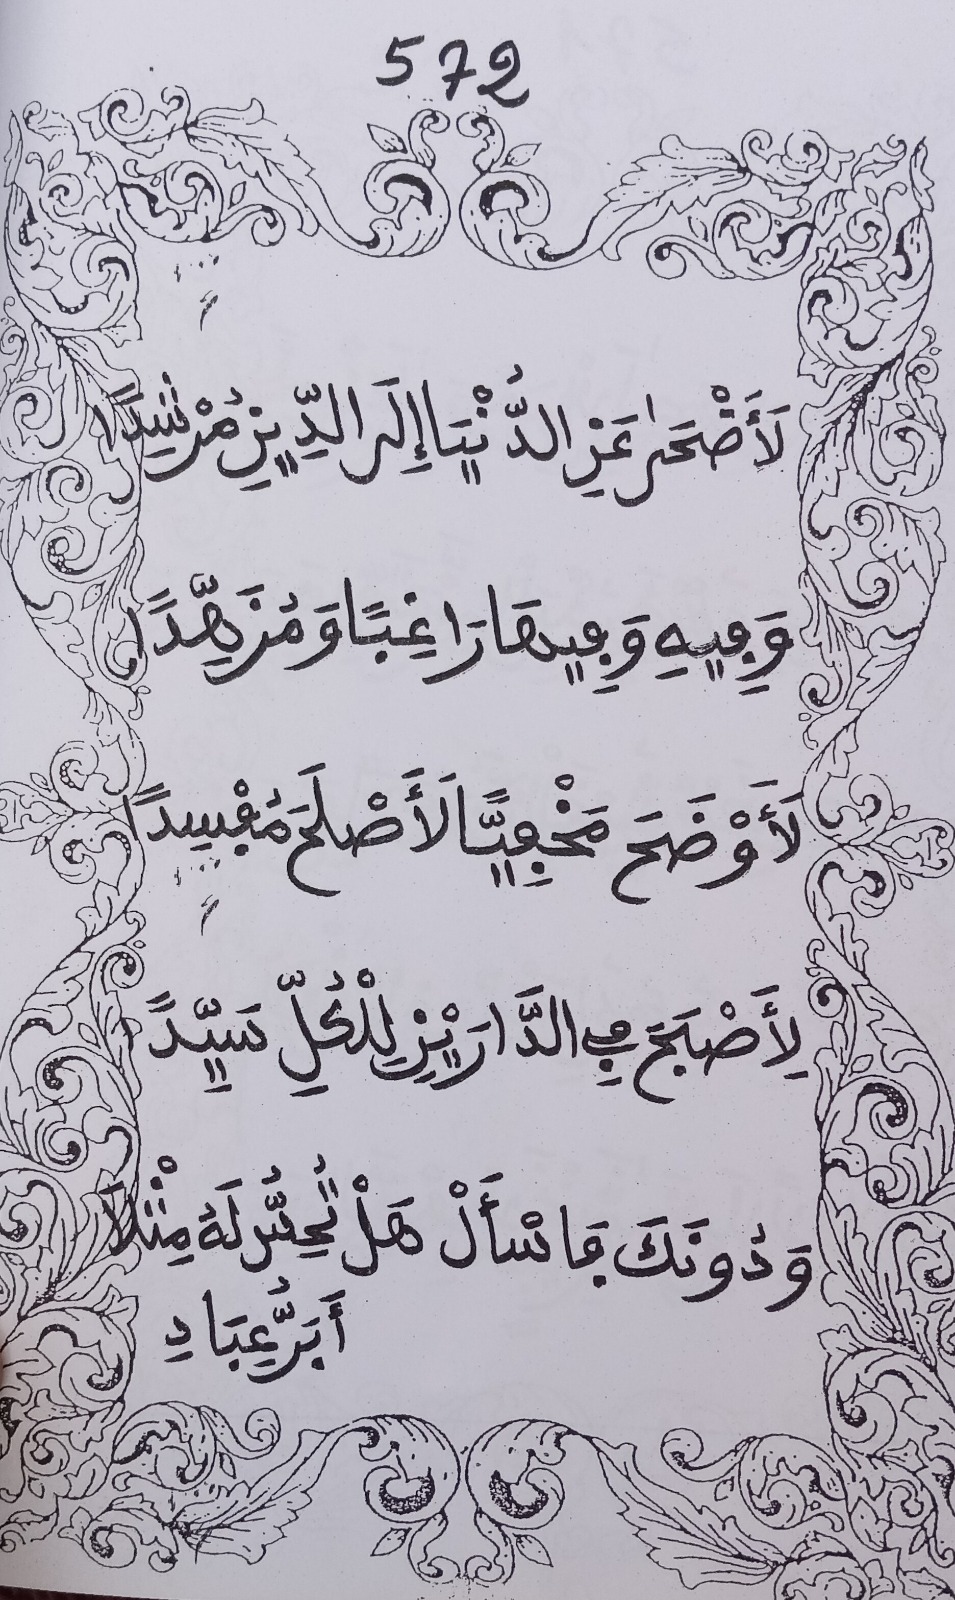 572
لَأَضْحَىٰ عَنِ الدُّنْيَا إِلَى الدِّينِ مُرْشِدًا
وَفِيهِ وَفِيهَا رَاغِبًا وَمُزَهِّدًا
لَأَوْضَحَ مَخْفِيًّا لَأَصْلَحَ مُفْسِدًا
لِأَصْبَحَ فِي الدَّارَيْنِ لِلْكُلِّ سَيِّدًا
وَدُونَكَ فَاسْأَلْ هَلْ تُحِسُّ لَهُ مِثْلَا
أَبَرُّ عِبَادِ